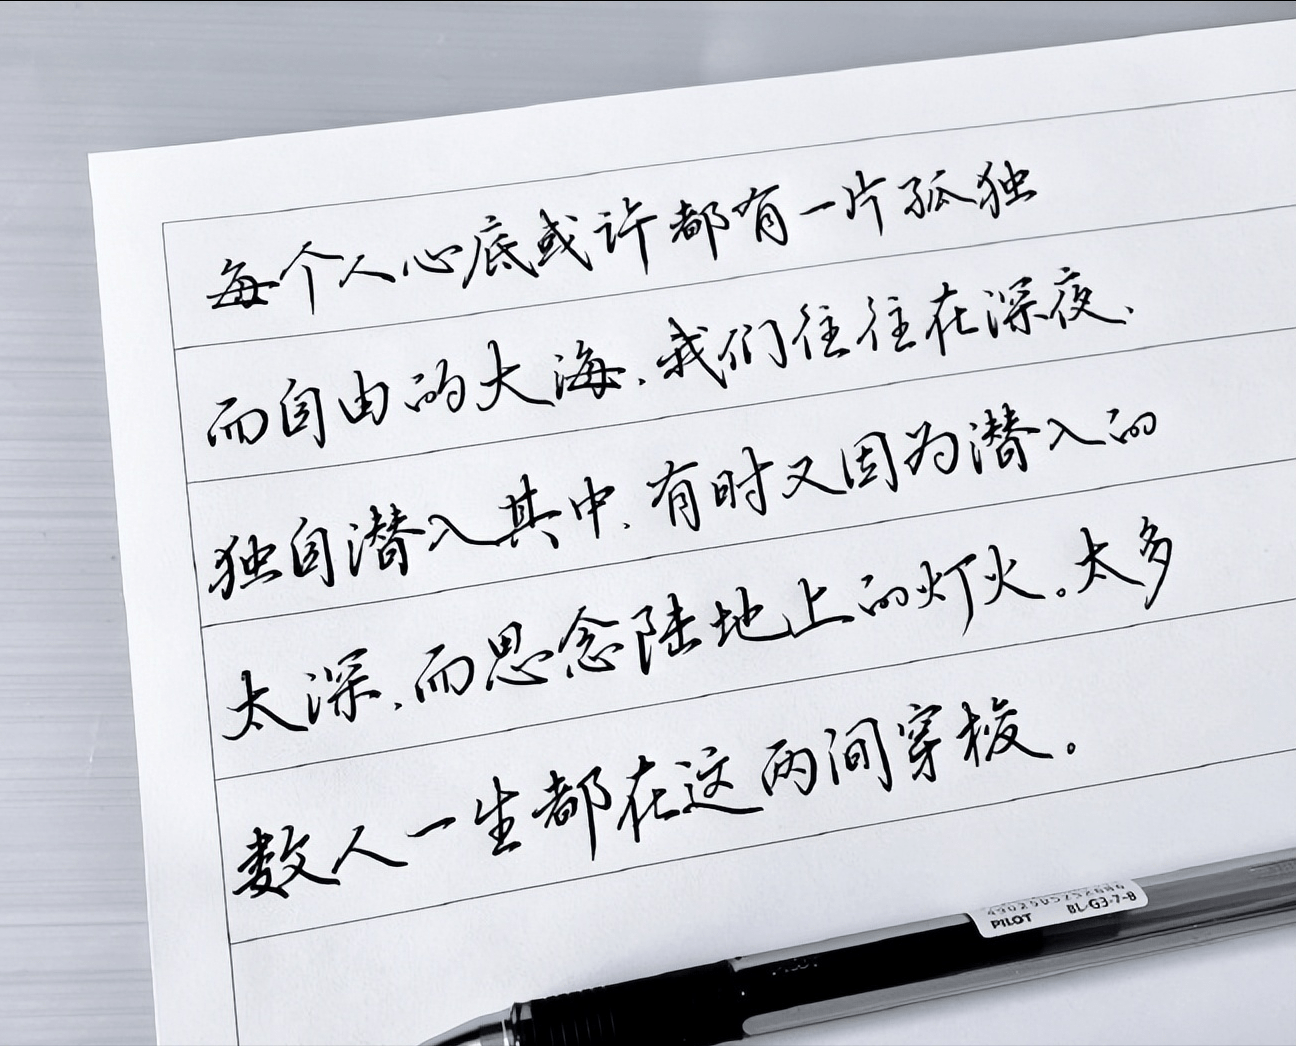 每个人心底或许都有一片孤独
而自由的大海，我们往往在深夜、
独自潜入其中，有时又因为潜入的
太深，而思念陆地上的灯火。太多
数人一生都在这两间穿梭。
4902505752686
PILOT BL-G3-7-B